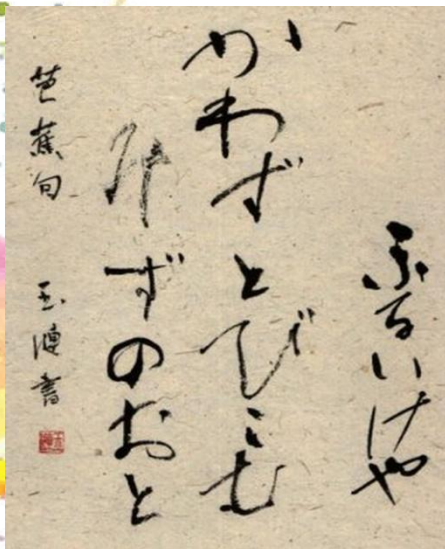 ふるいけや
かわずとびこむ
みずのおと
芭蕉句 玉漣書